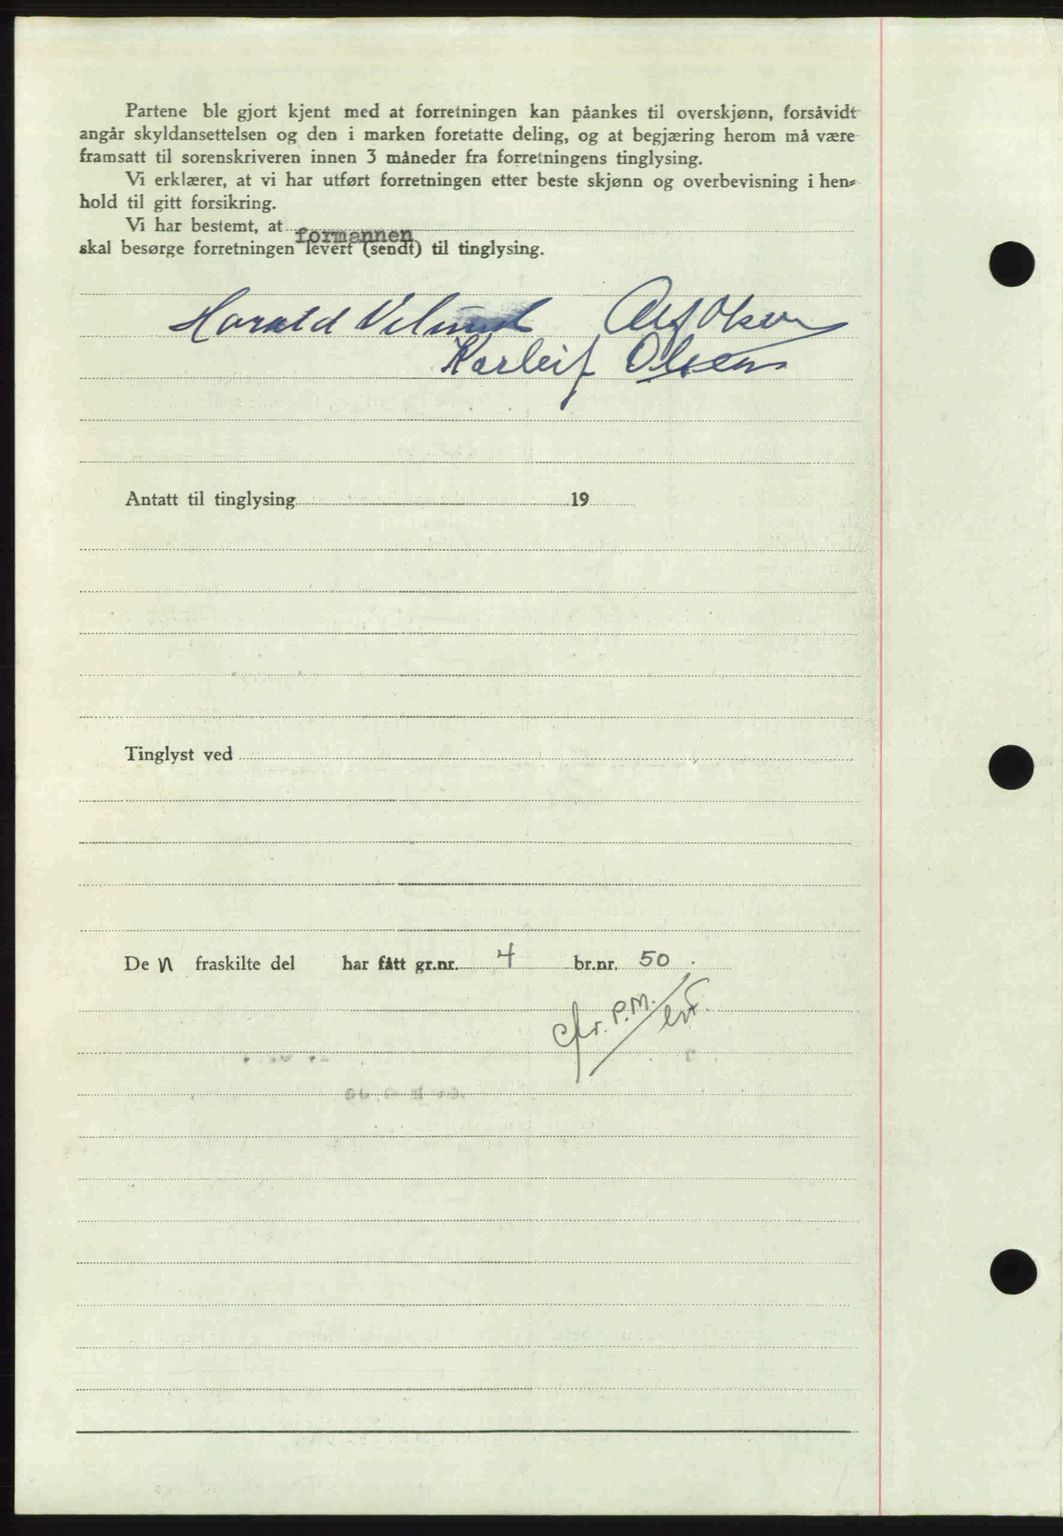 Partene ble gjort kjent med at forretningen kan påankes til overskjønn, forsåvidt
angår skyldansettelsen og den i marken foretatte deling, og at begjæring herom må være
framsatt til sorenskriveren innen 3 måneder fra forretningens tinglysing.
Vi erklærer, at vi har utført forretningen etter beste skjønn og overbevisning i hen-
hold til gitt forsikring.
Vi har bestemt, at formannen
skal besørge forretningen levert (sendt) til tinglysing.
Harald Alf Olsen
Karleif Olsen
Antatt til tinglysing 19
Tinglyst ved
Den fraskilte del har fått gr.nr. 4 br.nr. 50.
cfr. P.M.